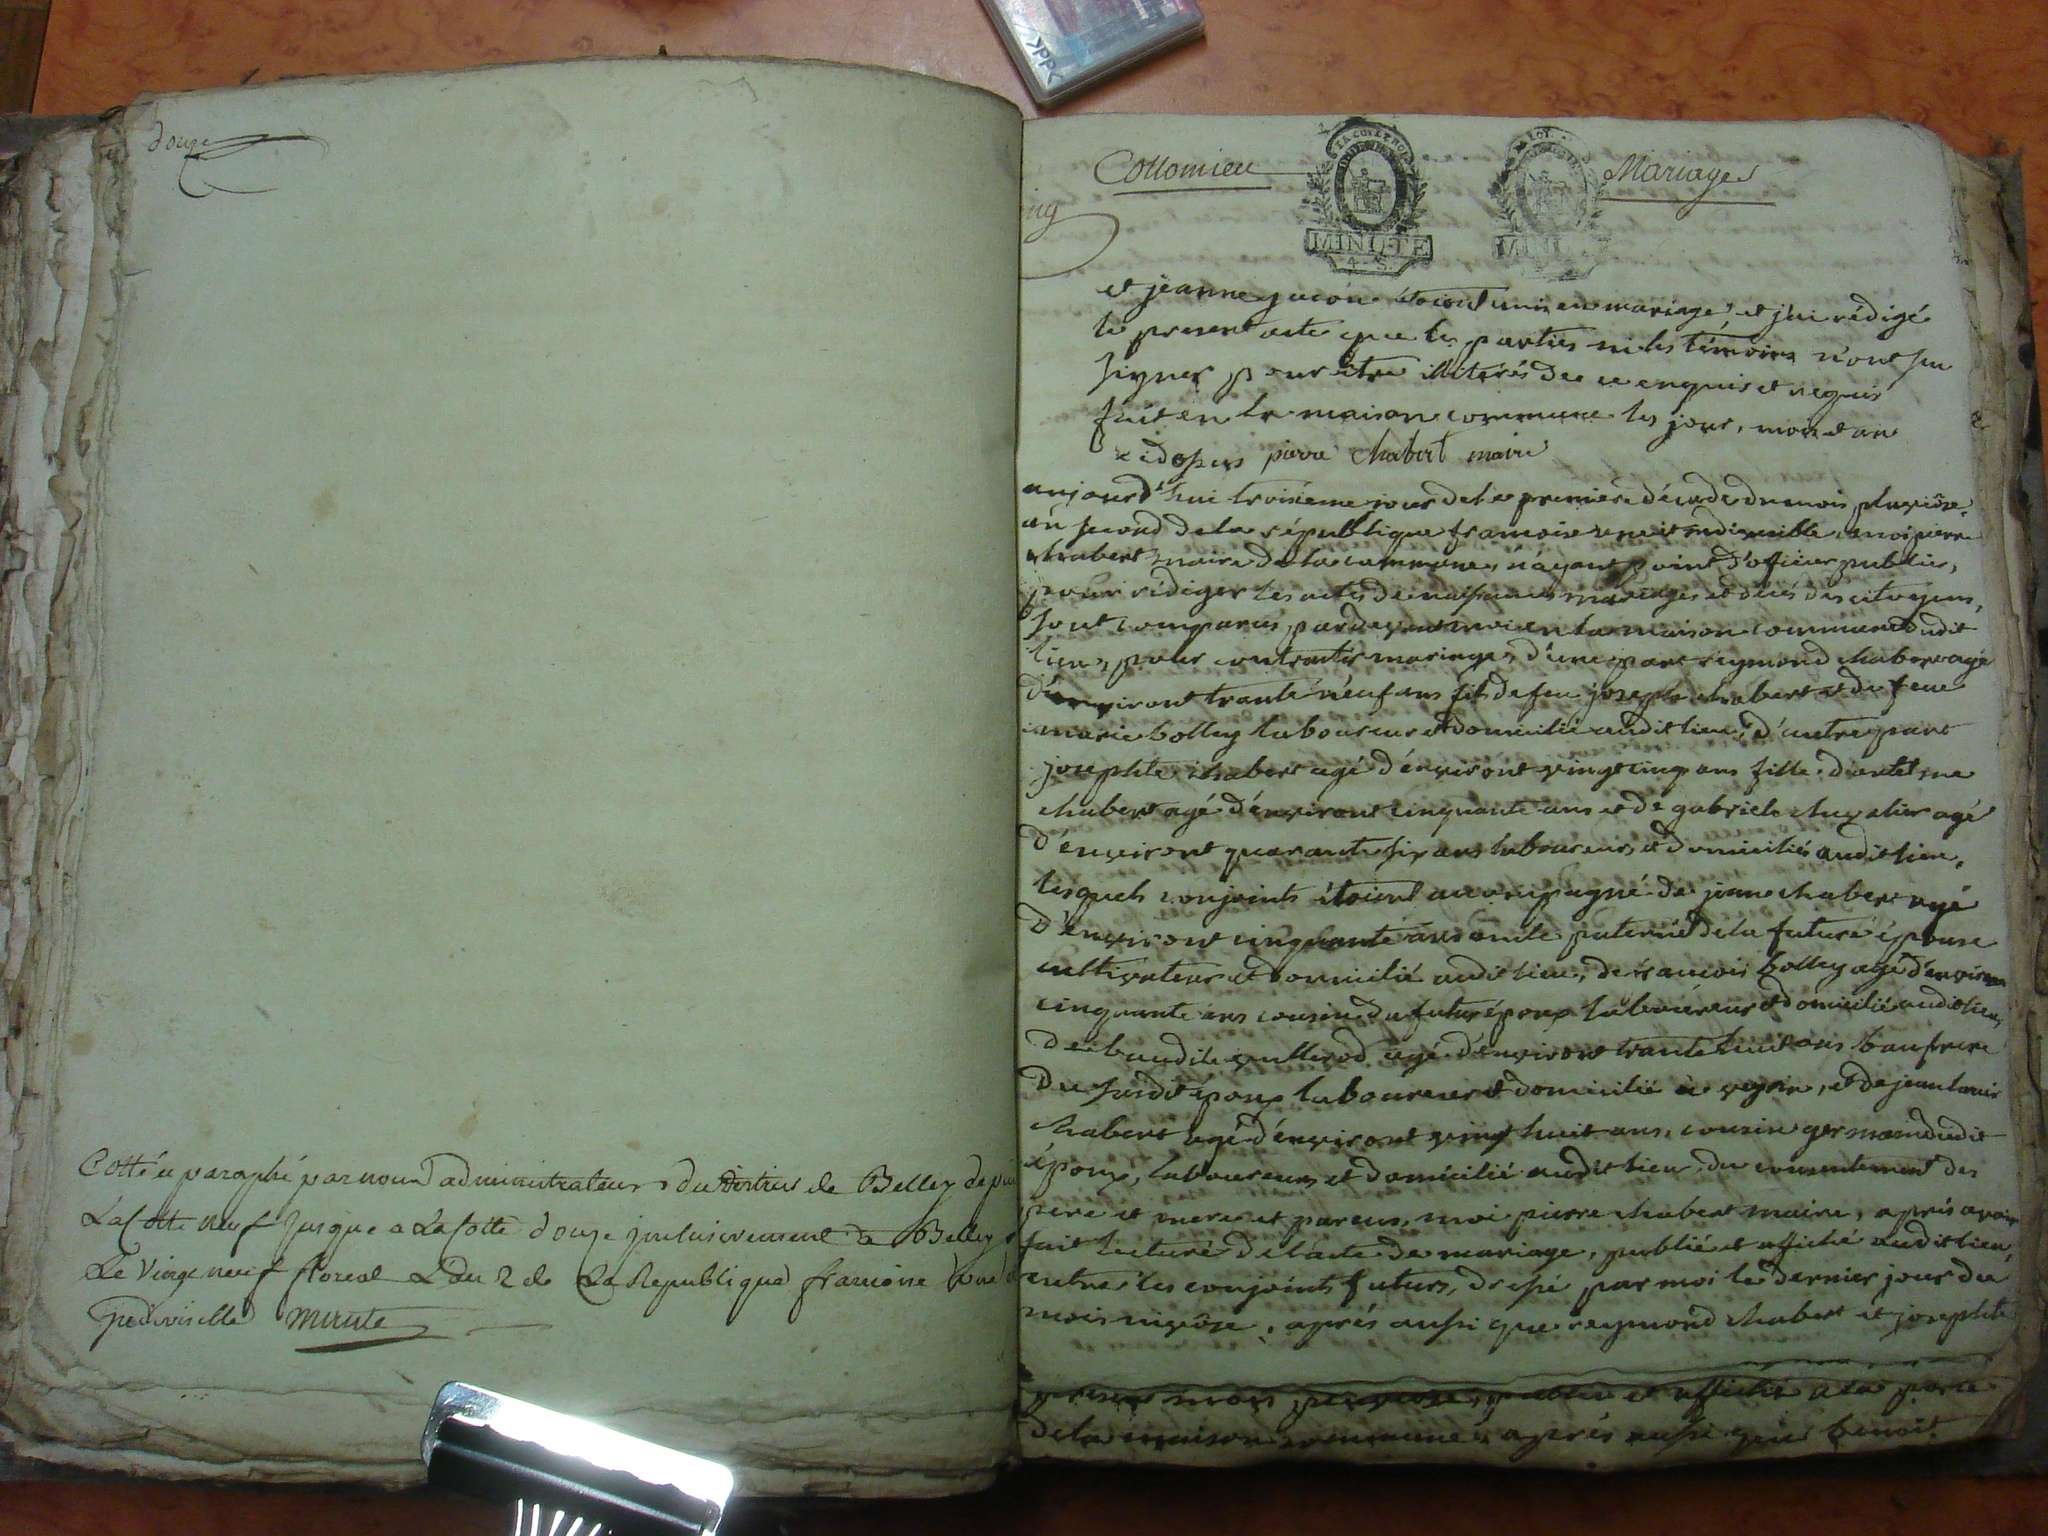 douze
Cotté et paraphé par nous administrateur du district de Belley depuis
La Cotte neuf jusque a La Cotte douze inclusivement de Belley
Le Vingt neuf floreal L'an 2 de La Republique francoise une
indivisible minute
Collomieu
Mariages
LA LOI ET LE ROI
MINUTE
4 S
et jeanne étoient unis en mariage et j'ai rédigé
le present acte que les parties ni les témoins n'ont su
signer pour être illiterés de ce enquis et requis
fait en la maison commune les jour, mois et an
cidessus pierre Chabert maire
aujourd'hui troisieme jour de la premiere décade du mois pluviôse
an second de la république francoise une et indivisible, moi pierre
chabert maire de la commune, n'ayant point d'officier public,
pour rédiger les actes de naissances mariages et décés des citoyens,
sont comparus pardevant moi en la maison commune dudit
lieu, pour contracter mariage, d'une part reymond chabert agé
d'environt trante neuf ans fils de feu joseph chabert et de feue
marie bolley laboureur et domicilié audit lieu, d'autre part
josephte chabert agé d'environt vingt cinq ans fille d'antelme
chabert agé d'environt cinquante ans et de gabriele chevalier agé
d'environt quarante six ans laboureurs et domiciliés audit lieu,
lesquels conjoints étoient accompagné de jeane chabert agé
d'environt cinquante ans oncle paternel de la future épouse
cultivateur et domicilié audit lieu, de francois bolley agé d'environt
cinquante ans cousin du futur époux laboureur et domicilié audit lieu,
de agé d'environt trante huit ans baufrere
du susdit époux laboureur et domicilié à, et de jean louis
chabert agé d'environt vingt huit ans, cousin germain dudit
époux, laboureur et domicilié audit lieu, du consentement des
pere et mere et pareus, moi pierre chabert maire, aprés avoir
fait lecture de l'acte de mariage, publié et affiché audit lieu,
entre les conjoints futurs, dressé par moi le dernier jour du
mois nivôse, aprés aussi que reymond chabert et josephte
present mois, publié et affiché a la porte
de la maison commune, aprés aussi que benoit